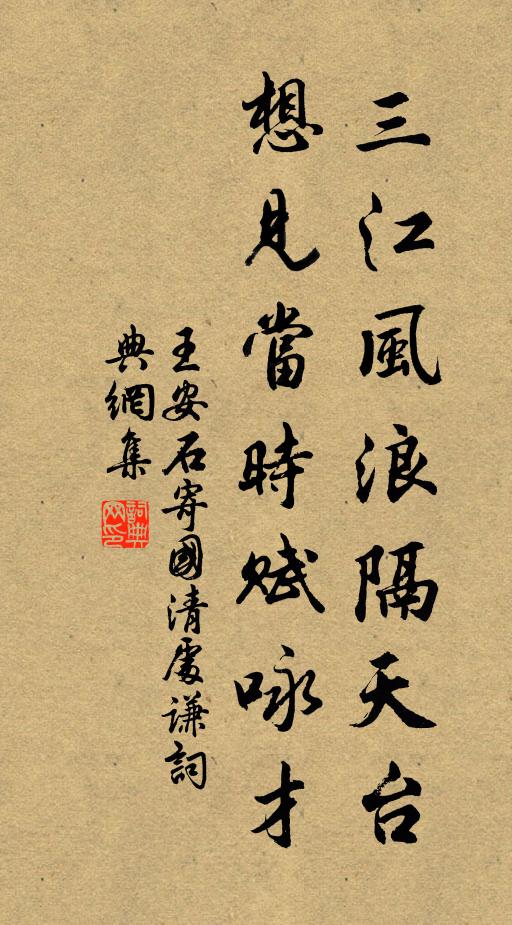 三江風浪隔天台
想見當時賦咏才
王安石寄國清處謙詞
典網集
詞典網印